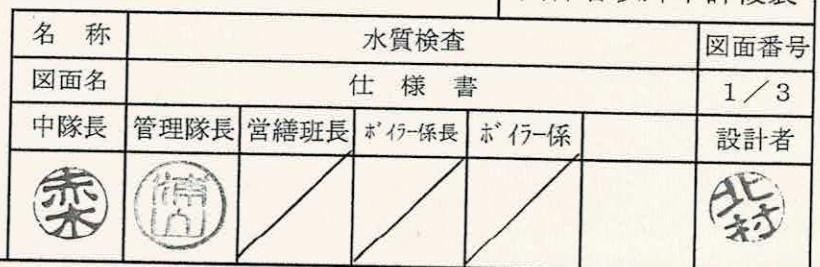 名 称 水質検査 図面番号
図面名 仕 様 書 1／3
中隊長 管理隊長 営繕班長 ボイラー係長 ボイラー係 設計者
赤木 浦山 北村